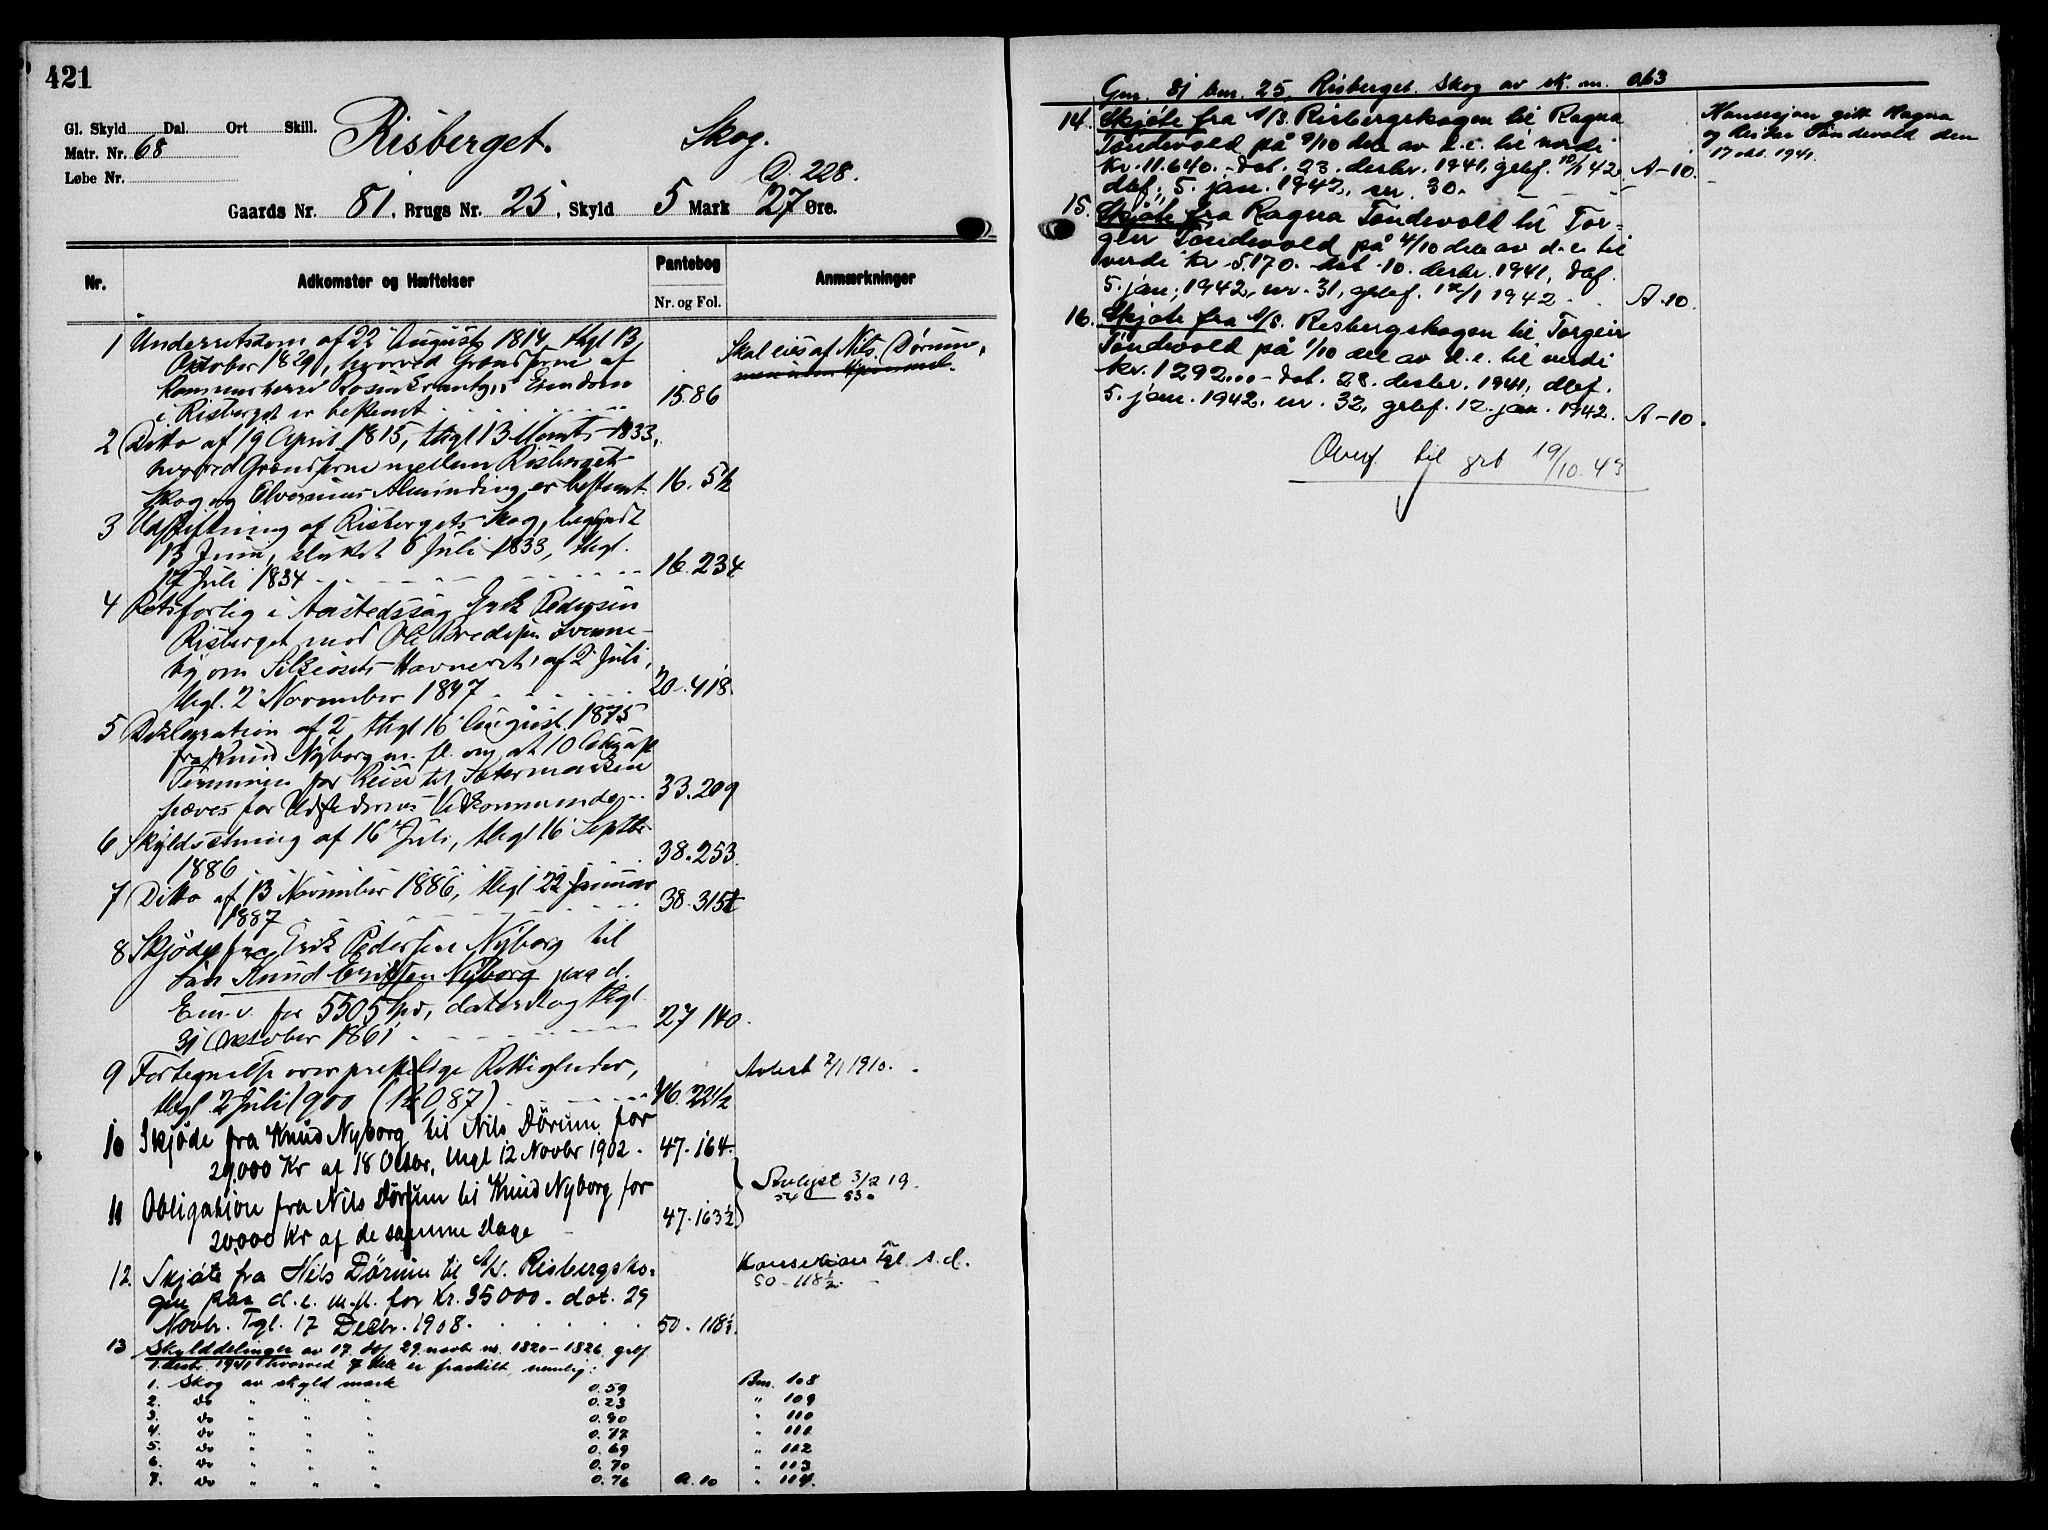 421
Gl. Skyld Dal. Ort Skill.
Matr. Nr. 68
Løbe Nr.
Risberget. Skog.
D. 228.
Gaards Nr. 81, Brugs Nr. 25, Skyld 5 Mark 27 Øre.
Nr. Adkomster og Hæftelser Pantebog Anmærkninger
Nr. og Fol.
1 Underretsdom af 22 August 1814, thgl 13
Oktober 1829, hvorved Grændserne af
Kammerherre Rosenkrantz's Eiendom
i Risberget er bestemt 15.86
Skal eies af Nils Dørum,
2 Ditto af 19 April 1815, thgl 13 Marts 1833,
hvorved Grændserne mellem Risberget
Skog og Elverums Alminding er bestemt 16. 5½
3 Udskiftning af Risbergets Skog, begyndt
13 Juni, sluttet 6 Juli 1833, thgl.
17 Juli 1834 16.234
4 Retsforlig i Aastedssag Erik Pedersen
Risberget mod Ole
by om Havneret, af 2 Juli,
thgl. 2 November 1847 20.418
5 Deklaration af 2, thgl 16 August 1875
fra Knud Nyborg m. fl. om, at 10
Terminen for Reise til Sætermarken
hæves for Udstedernes Vedkommende 33.209
6 Skyldsætning af 16 Juli, thgl 16 Septbr
1886 38.253.
7 Ditto af 13 November 1886, thgl 22 Januar
1887 38.315
8 Skjøde fra Erik Pedersen Nyborg til
Søn Knud Eriksen Nyborg paa d.
Eiend. for 550 Spd, dateret og thgl
31 Oktober 1861 27 140.
9 Fortegnelse over præstelige Rettigheder,
thgl 2 Juli 1900 46. 22½
Avlest 7/1 1910.
10 Skjøde fra Knud Nyborg til Nils Dørum for
29,000 Kr af 18 Octbr, thgl 12 Novbr 1902. 47.164
11 Obligation fra Nils Dørum til Knud Nyborg for
20,000 Kr af de samme Dage 47.163½
Avlyst 3/2 19.
54 — 53.
12. Skjøte fra Nils Dørum til A/S. Risbergsko-
gen paa d. e. m. M. for Kr. 35000. dat. 29
Novbr. Tgl. 17 Decbr. 1908. 50. 118½.
Konsesjon tgl. s. d.
50 - 118½.
13 Skylddelinger av 17. dbf 29. novbr nr. 1820-1826, gref
1. desbr. 1941 hvorved 7 dele er fraskilt, nemlig:
1. Skog av skyld mark 0.59 Bnr. 108
2. do " " " 0.23 " 109
3. do " " " 0.90 " 110
4. do " " " 0.77 " 111
5. do " " " 0.69 " 112
6. do " " " 0.70 " 113
7. do " " " 0.76 A.10 " 114.
Gnr. 81 bnr. 25, Risberget Skog av sk. m. 0.63
14. Skjøte fra A/S. Risbergskogen til Ragna
Tøndevold på 9/10 dele av d. e. til verdi
kr. 11.640. - dat. 23. desbr. 1941, grbf. 12/1 42
dbf. 5. jan. 1942, nr. 30. A-10.
Konsesjon gitt Ragna
og Tøndevold den
17 okt. 1941.
15. Skjøte fra Ragna Tøndevold til Tor-
geir Tøndevold på 4/10 dele av d. e. til
verdi kr 5.170. dat. 10. desbr. 1941, dbf.
5. jan. 1942, nr. 31, grbf. 12/1 1942. A-10.
16. Skjøte fra A/S. Risbergskogen til Torgeir
Tøndevold på 1/10 del av d. e. til verdi
kr. 1292.00 - dat. 28. desbr. 1941, dbf.
5. jan. 1942. nr. 32, grbf. 12. jan. 1942. A-10.
Overf. til grb 19/10. 43